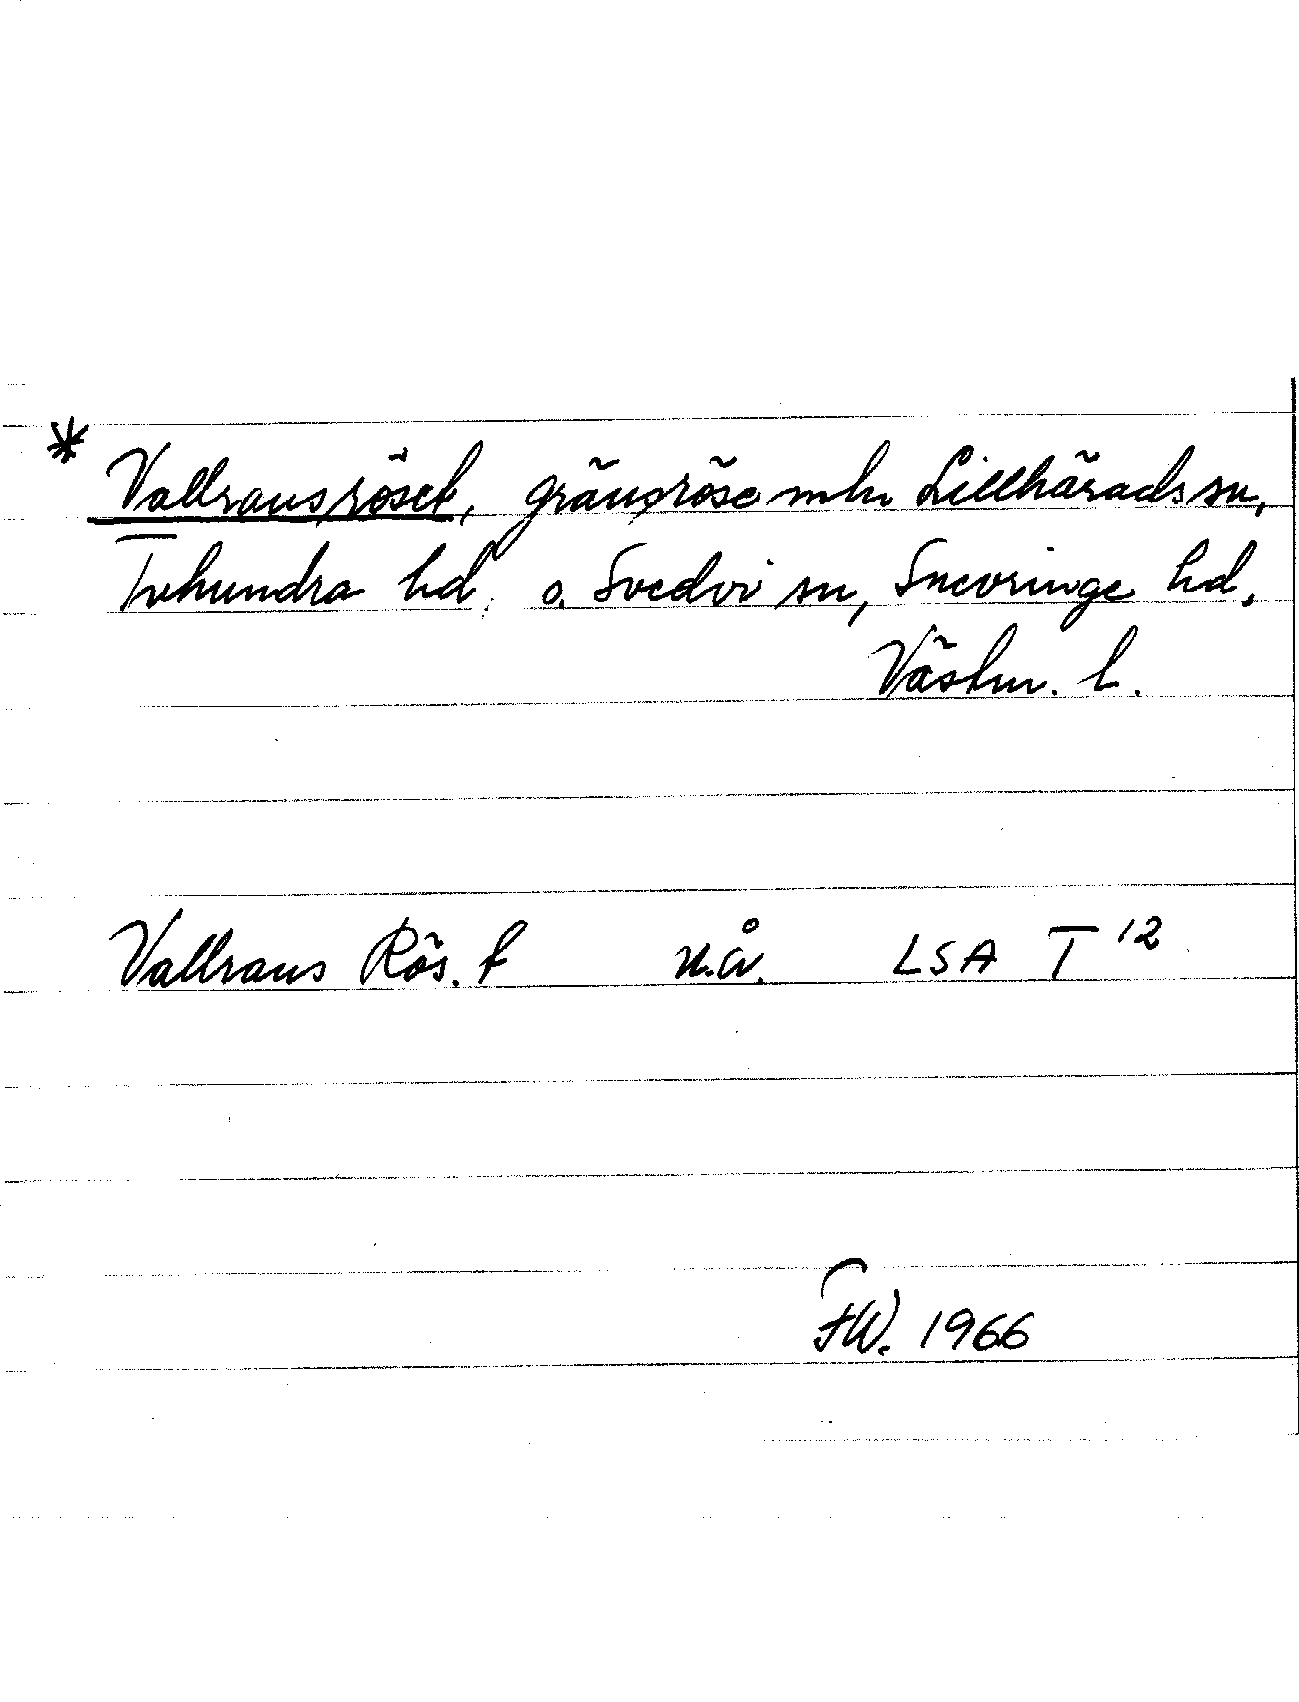 * Vallransröset, gränsröse mln Lillhärads sn,
Tuhundra hd, o. Svedvi sn, Snevringe hd,
Västm. l.
Vallrans Rös. t u.å. LSA T 12
FW. 1966